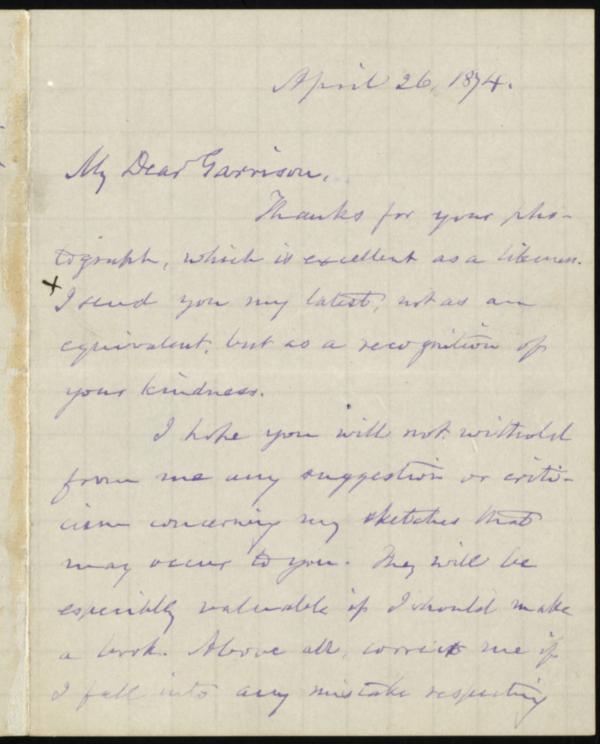 April 26, 1874.
My Dear Garrison,
Thanks for your pho-
tograph, which is excellent as a likeness.
x
I send you my latest, not as an
equivalent, but as a recognition of
your kindness.
I hope you will not withold
from me any suggestion or criti-
cism concerning my sketches that
may occur to you. They will be
especially valuable if I should make
a book. Above all, correct me if
I fall into any mistake respecting